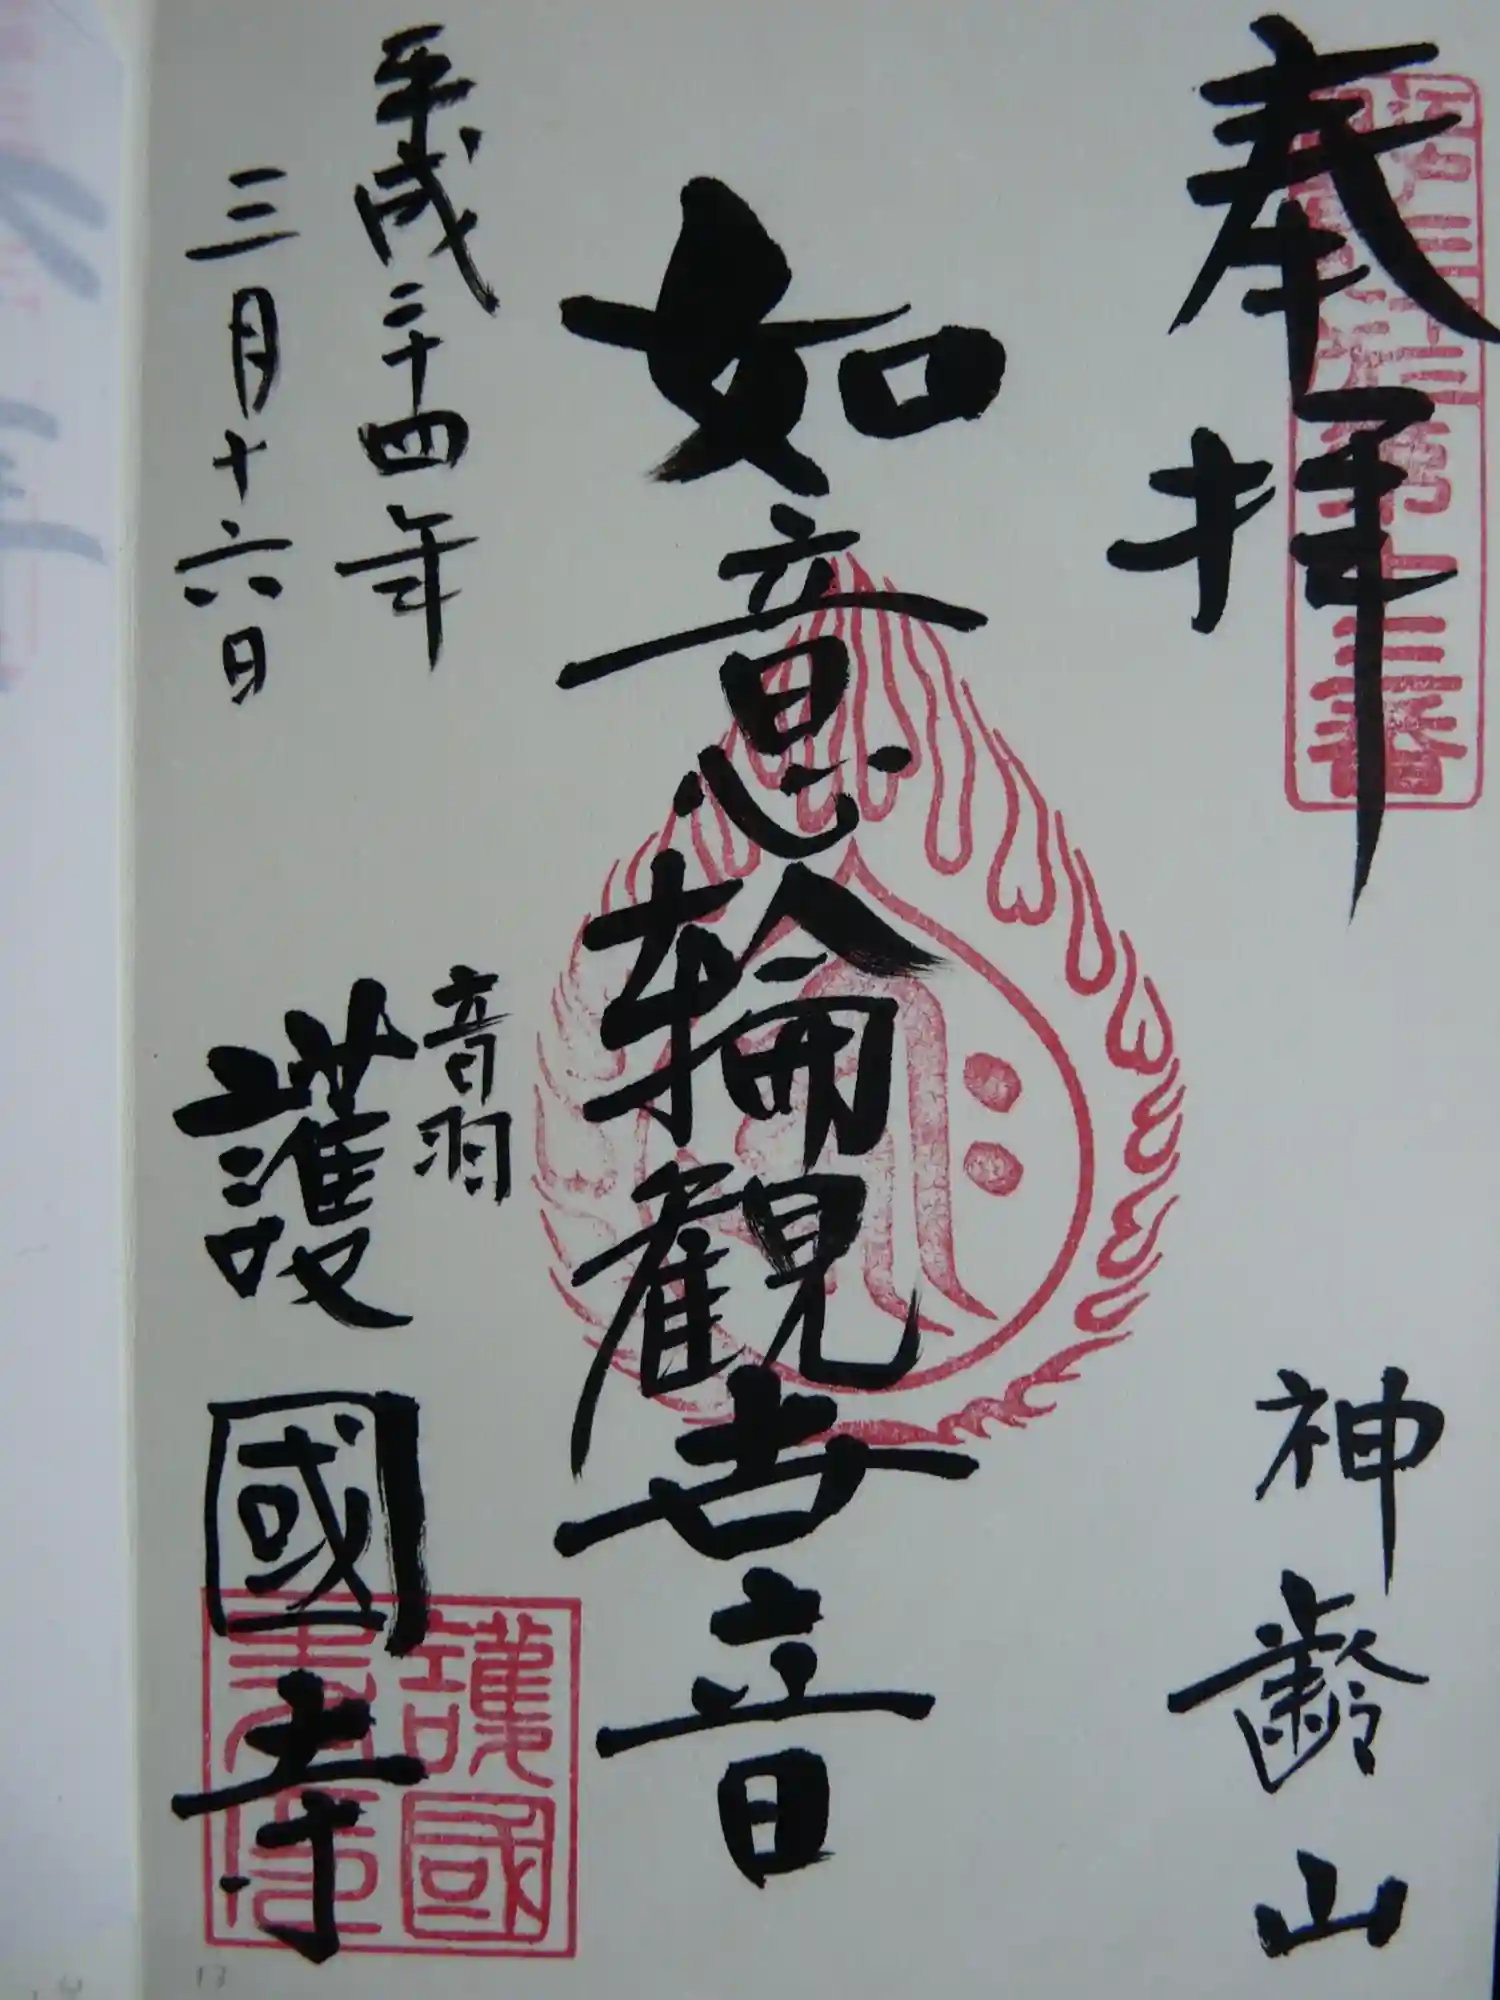 奉拝
江戸三十三ヶ所第十三番
神齢山
如意輪観世音
平成二十四年
三月十六日
音羽
護國寺
護國寺印